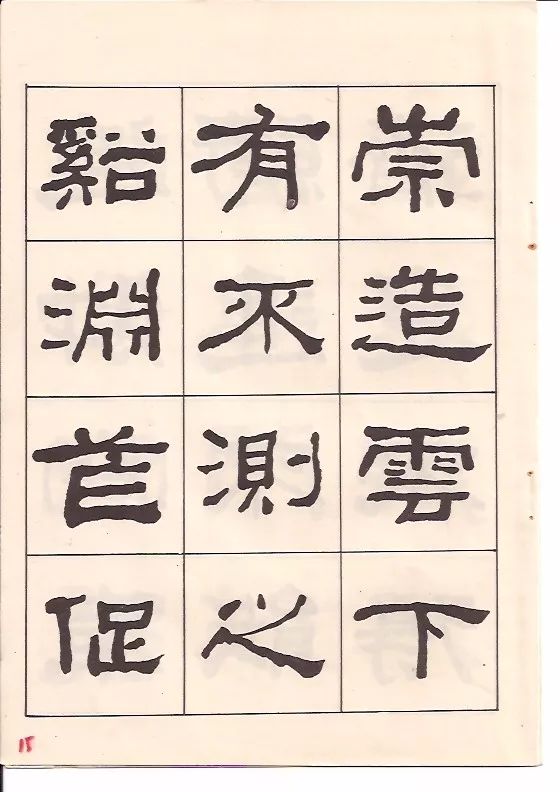 崇造雲下
有不測之
谿淵促
15